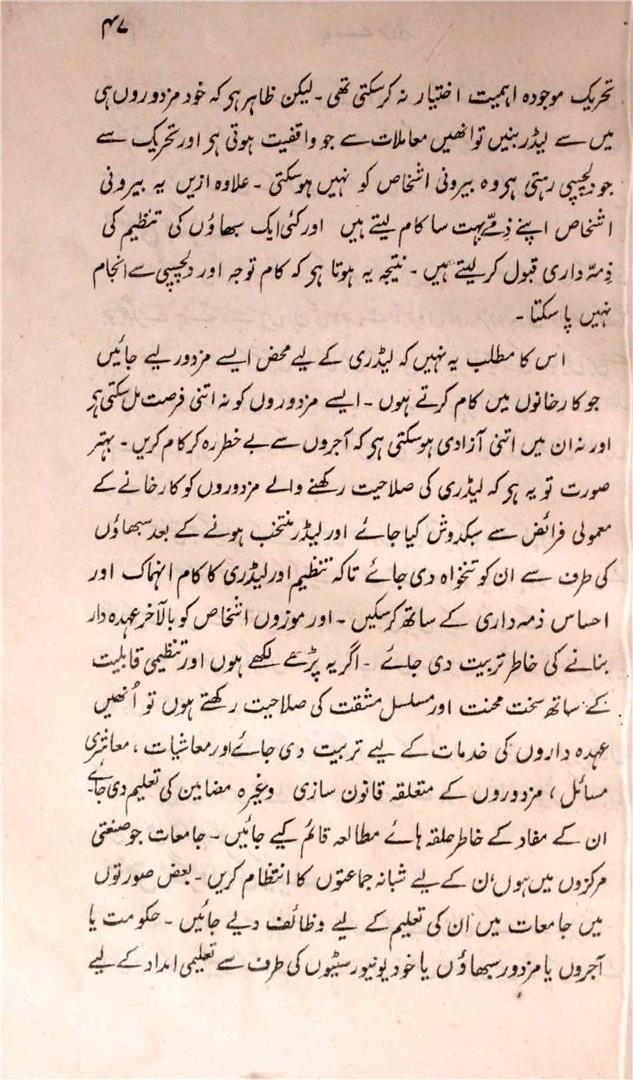 ۴۷
تحریک موجودہ اہمیت اختیار نہ کرسکتی تھی ۔ لیکن ظاہر ہی کہ خود مزدوروں ہی
میں سے لیڈر بنیں تو انھیں معاملات سے جو واقفیت ہوتی ہی اور تحریک سے
جو دلچسپی رہتی ہی وہ بیرونی اشخاص کو نہیں ہوسکتی ۔ علاوہ ازیں یہ بیرونی
اشخاص اپنے ذمّے بہت سا کام لیتے ہیں اور کئی ایک سبھاؤں کی تنظیم کی
ذمّہ داری قبول کرلیتے ہیں ۔ نتیجہ یہ ہوتا ہی کہ کام توجہ اور دلچسپی سے انجام
نہیں پا سکتا ۔
اس کا مطلب یہ نہیں کہ لیڈری کے لیے محض ایسے مزدور لیے جائیں
جو کارخانوں میں کام کرتے ہوں ۔ ایسے مزدوروں کو نہ اتنی فرصت مل سکتی ہی
اور نہ ان میں اتنی آزادی ہوسکتی ہی کہ آجروں سے بے خطر رہ کر کام کریں ۔ بہتر
صورت تو یہ ہی کہ لیڈری کی صلاحیت رکھنے والے مزدوروں کو کارخانے کے
معمولی فرائض سے سبکدوش کیا جائے اور لیڈر منتخب ہونے کے بعد سبھاؤں
کی طرف سے ان کو تنخواہ دی جائے تاکہ تنظیم اور لیڈری کا کام انہماک اور
احساس ذمہ داری کے ساتھ کرسکیں ۔ اور موزوں اشخاص کو بالآخر عہدہ دار
بنانے کی خاطر تربیت دی جائے ۔ اگر یہ پڑھے لکھے ہوں اور تنظیمی قابلیت
کے ساتھ سخت محنت اور مسلسل مشقت کی صلاحیت رکھتے ہوں تو اُنھیں
عہدہ داروں کی خدمات کے لیے تربیت دی جائے اور معاشیات ، معاشری
مسائل ، مزدوروں کے متعلقہ قانون سازی وغیرہ مضامین کی تعلیم دی جائے ۔
ان کے مفاد کے خاطر حلقہ ہائے مطالعہ قائم کیے جائیں ۔ جامعات جو صنعتی
مرکزوں میں ہوں اُن کے لیے شبانہ جماعتوں کا انتظام کریں ۔ بعض صورتوں
میں جامعات میں ان کی تعلیم کے لیے وظائف دیے جائیں ۔ حکومت یا
آجروں یا مزدور سبھاؤں یا خود یونیورسٹیوں کی طرف سے تعلیمی امداد کے لیے